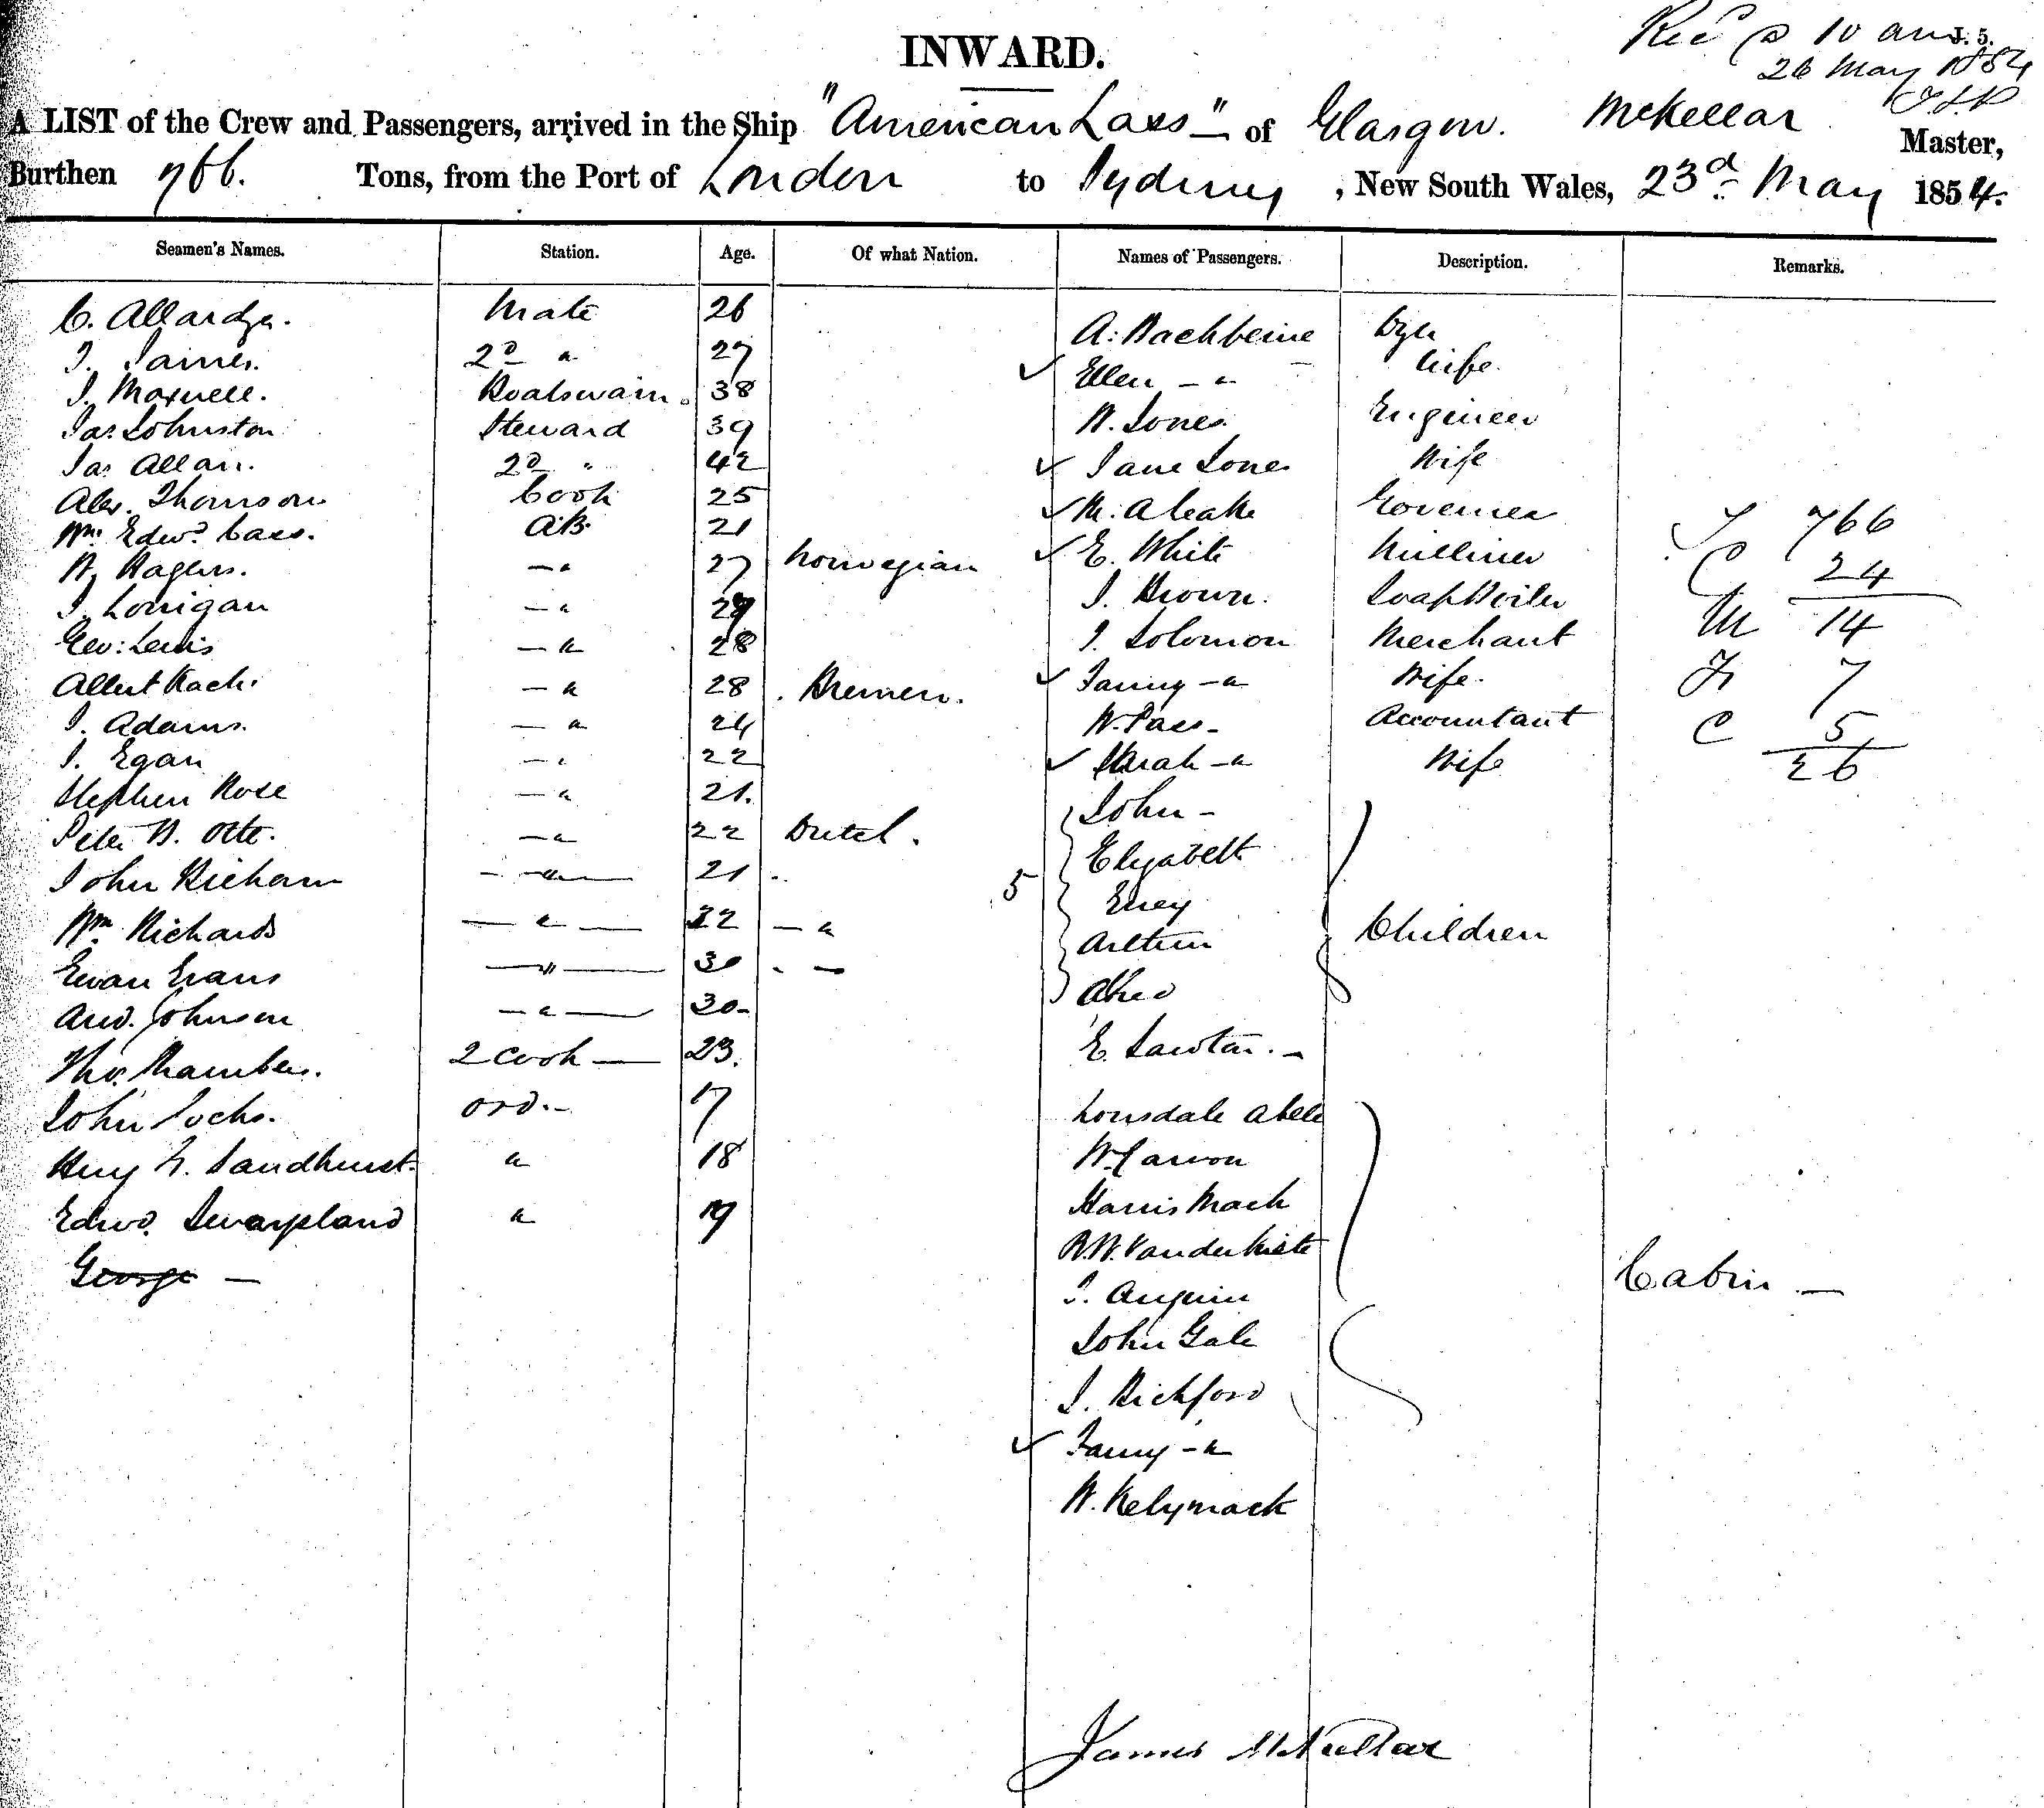 INWARD.
J. 5.
10 am
26 May 1854
A LIST of the Crew and Passengers, arrived in the Ship "American Lass" of Glasgow. McKellar Master,
Burthen 766. Tons, from the Port of London to Sydney, New South Wales, 23d May 1854.
Seamen's Names. Station. Age. Of what Nation. Names of Passengers. Description. Remarks.
C. Allardyce. Mate 26
J. James. 2d " 27
J. Maxwell. Boatswain. 38
Jas Johnston Steward 39
Jas Allan. 2d " 42
Alex. Thomson Cook 25
Wm. Edwd. Cass. A.B. 21
W. Rogers. — " 27 Norwegian
J. Lonigan — " 29
Geo: Lewis — " 28
Albert Koch. — " 28 Bremen.
J. Adams. — " 24
J. Egan — " 22
Stephen Rose — " 21.
Peter B. Otte. — " 22 Dutch.
John Bickham — " — 21
Wm. Richards — " — 32 — "
Evan Evans — " — 30
And. Johnson — " — 30
Thos. Chambers. 2 Cook — 23.
John Socks. Ord. 17
Hny Sandhurst. " 18
Edwd. Swaysland " 19
George —
A: Bachbeine Dyer
Ellen — " Wife.
W. Jones Engineer
Jane Jones Wife
M. A Leake Governess
E. White Milliner
J. Brown. Soap Boiler
J. Solomon Merchant
Fanny — " Wife.
W. Pass — Accountant
Sarah — " Wife
John —
Elizabeth
5
Arthur Children
E. Lawton. —
Lonsdale Abell
W. Carson
Harris Mack
R.W. Vanderkiste
J. Anguin
John Gale
J. Bickford
Fanny — "
W. Kelymack
T 766
C 24
M 14
F 7
C 5
26
Cabin —
James McKellar